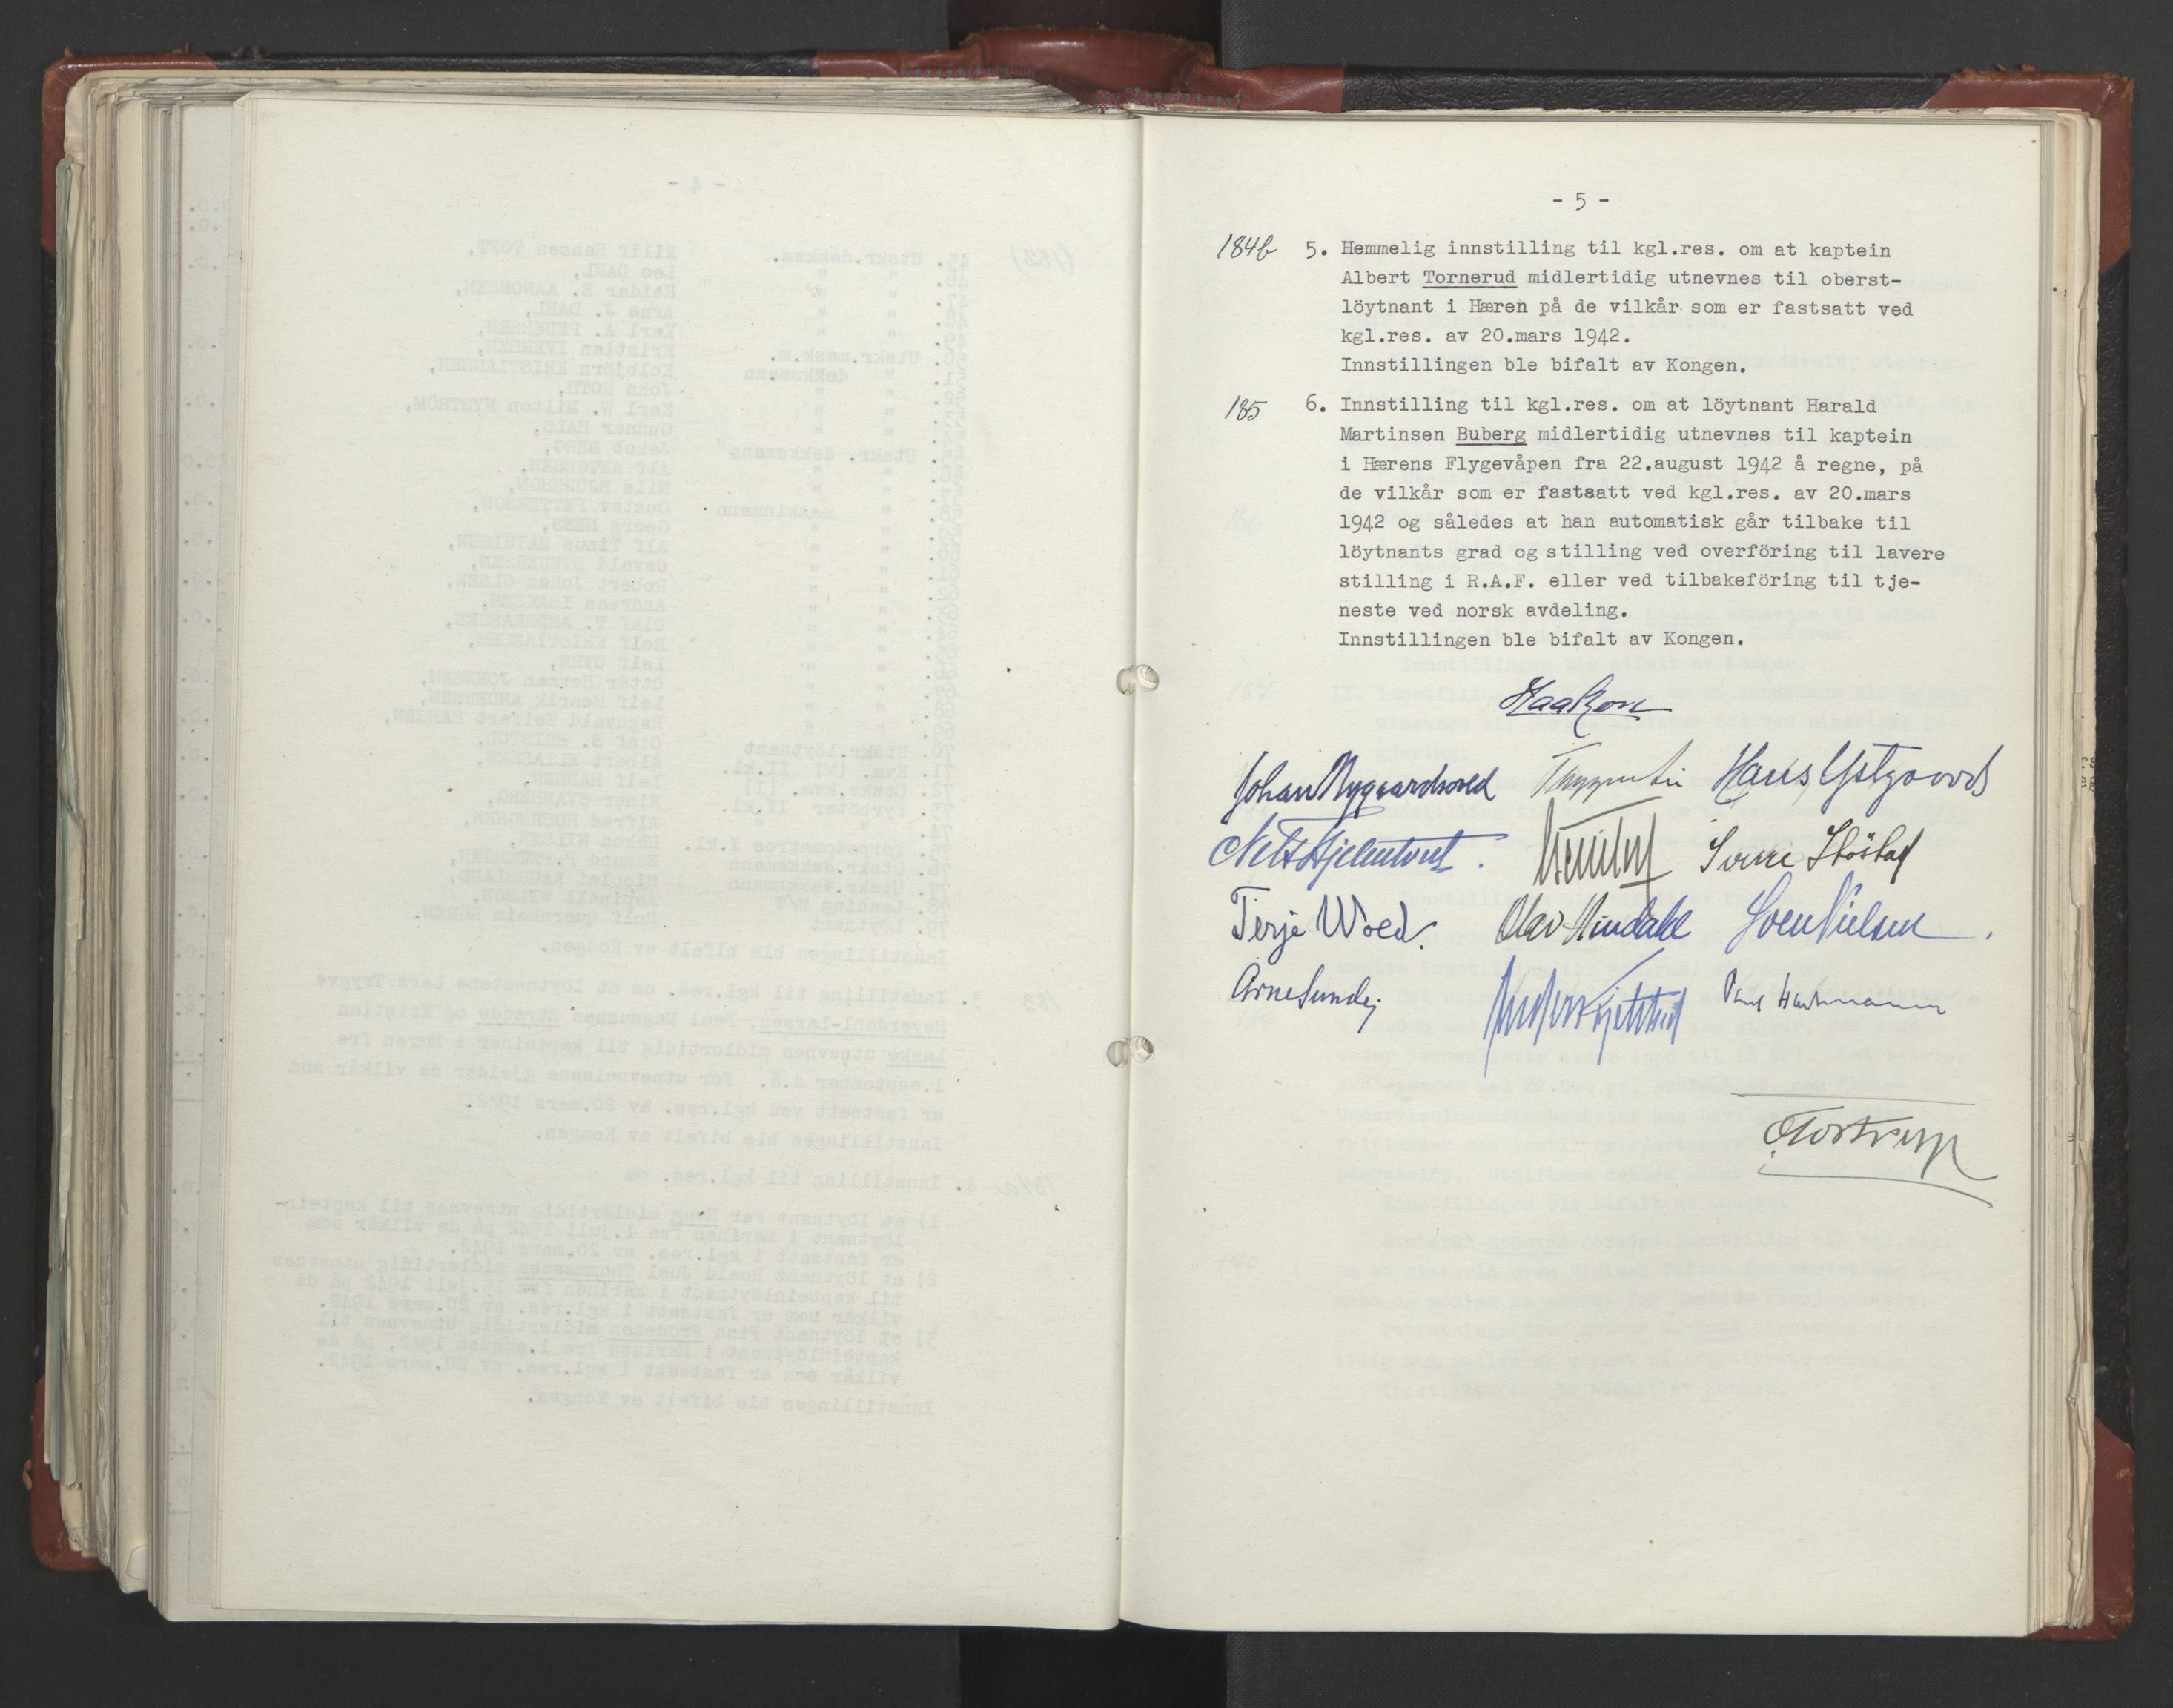 - 5 -
184b 5. Hemmelig innstilling til kgl.res. om at kaptein
Albert Tornerud midlertidig utnevnes til oberst-
löytnant i Hæren på de vilkår som er fastsatt ved
kgl.res. av 20.mars 1942.
Innstillingen ble bifalt av Kongen.
185 6. Innstilling til kgl.res. om at löytnant Harald
Martinsen Buberg midlertidig utnevnes til kaptein
i Hærens Flygevåpen fra 22.august 1942 å regne, på
de vilkår som er fastsatt ved kgl.res. av 20.mars
1942 og således at han automatisk går tilbake til
löytnants grad og stilling ved overföring til lavere
stilling i R.A.F. eller ved tilbakeföring til tje-
neste ved norsk avdeling.
Innstillingen ble bifalt av Kongen.
Haakon
Johan Nygaardsvold Trygve Lie Hans Ystgaard
Nils Hjelmtveit. Sverre Støstad
Terje Wold. Olav Hindahl Sven Nielsen.
Arne Sunde Anders Frihagen Paul Hartmann